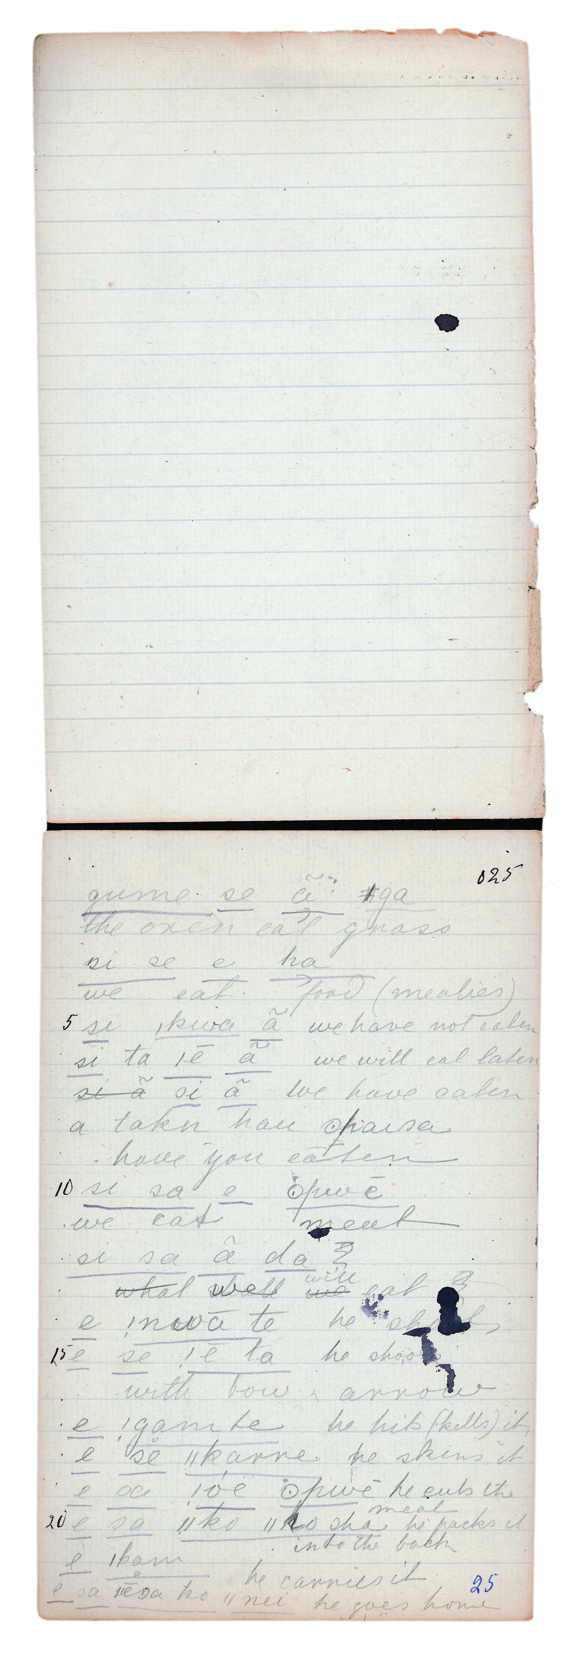 025
gume se ã ǂga
the oxen eat grass
si se e ha
we eat food (mealies)
5 si ǀkwa ã we have not eaten
si ta ǀē ã we will eat later
si ã si ã We have eaten
a takn hau ʘpaisa
have you eaten
10 si sa e ʘpwē
we eat meat
si sa ã da ?
what well we will eat ?
e ǃnwā te he shoots
15 e se ǀē ta he shoots
with bow & arrow
e ǃgam te he hits (kills) it
e se ǁkarre he skins it
e ǀoe ʘpwē he cuts the
meat
20 e sa ǁko ǁko sha he packs it
into the back
e ǀkam he carries it
e sa ko ǁnei he goes home
25